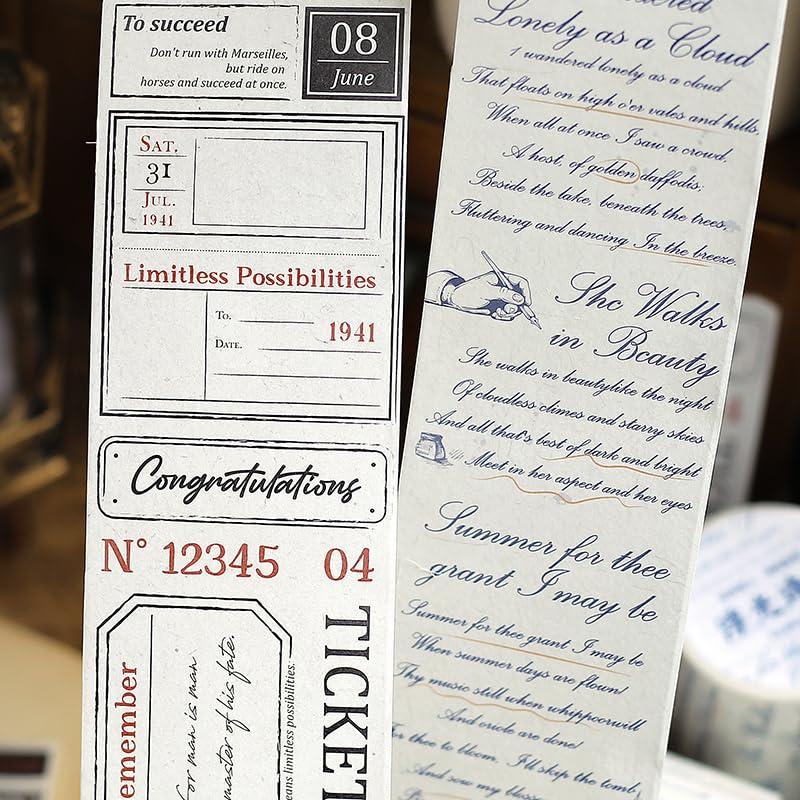 To succeed
Don't run with Marseilles,
but ride on
horses and succeed at once.
08
June
SAT.
31
JUL.
1941
Limitless Possibilities
TO.
DATE.
1941
Congratulations
N° 12345 04
TICKET
emember
for man is man
master of his fate.
eans limitless possibilities.
dered
Lonely as a Cloud
I wandered lonely as a cloud
That floats on high o'er vales and hills,
When all at once I saw a crowd,
A host, of golden daffodis;
Beside the lake, beneath the trees,
Fluttering and dancing In the breeze.
She Walks
in Beauty
She walks in beautylike the night
Of cloudless climes and starry skies
And all that's best of dark and bright
Meet in her aspect and her eyes
Summer for thee
grant I may be
Summer for thee grant I may be
When summer days are flown!
Thy music still when whippoorwill
And oriole are done!
For thee to bloom, I'll skip the tomb
And sow my blossoms